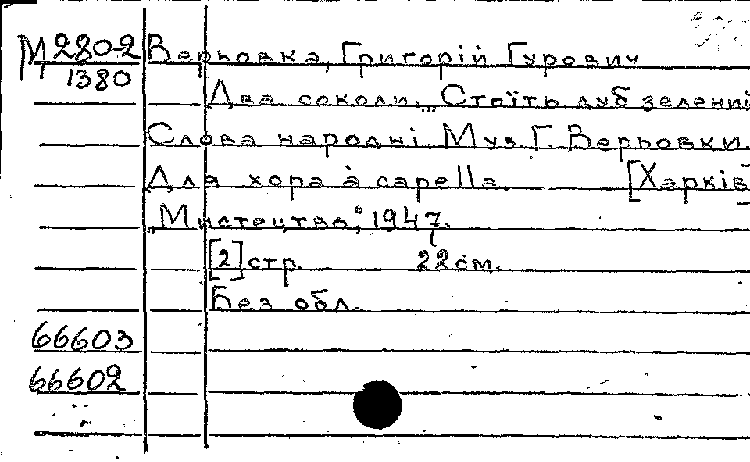 М 2802 Верьовка, Григорій Гурович
1380
Два соколи. „Стоїть дуб зелений
Слова народні Муз. Г. Верьовки.
Для хора à capella. [Харків]
„Мистецтво," 1947.
[2] стр. 22 см.
Без обл.
66603
66602